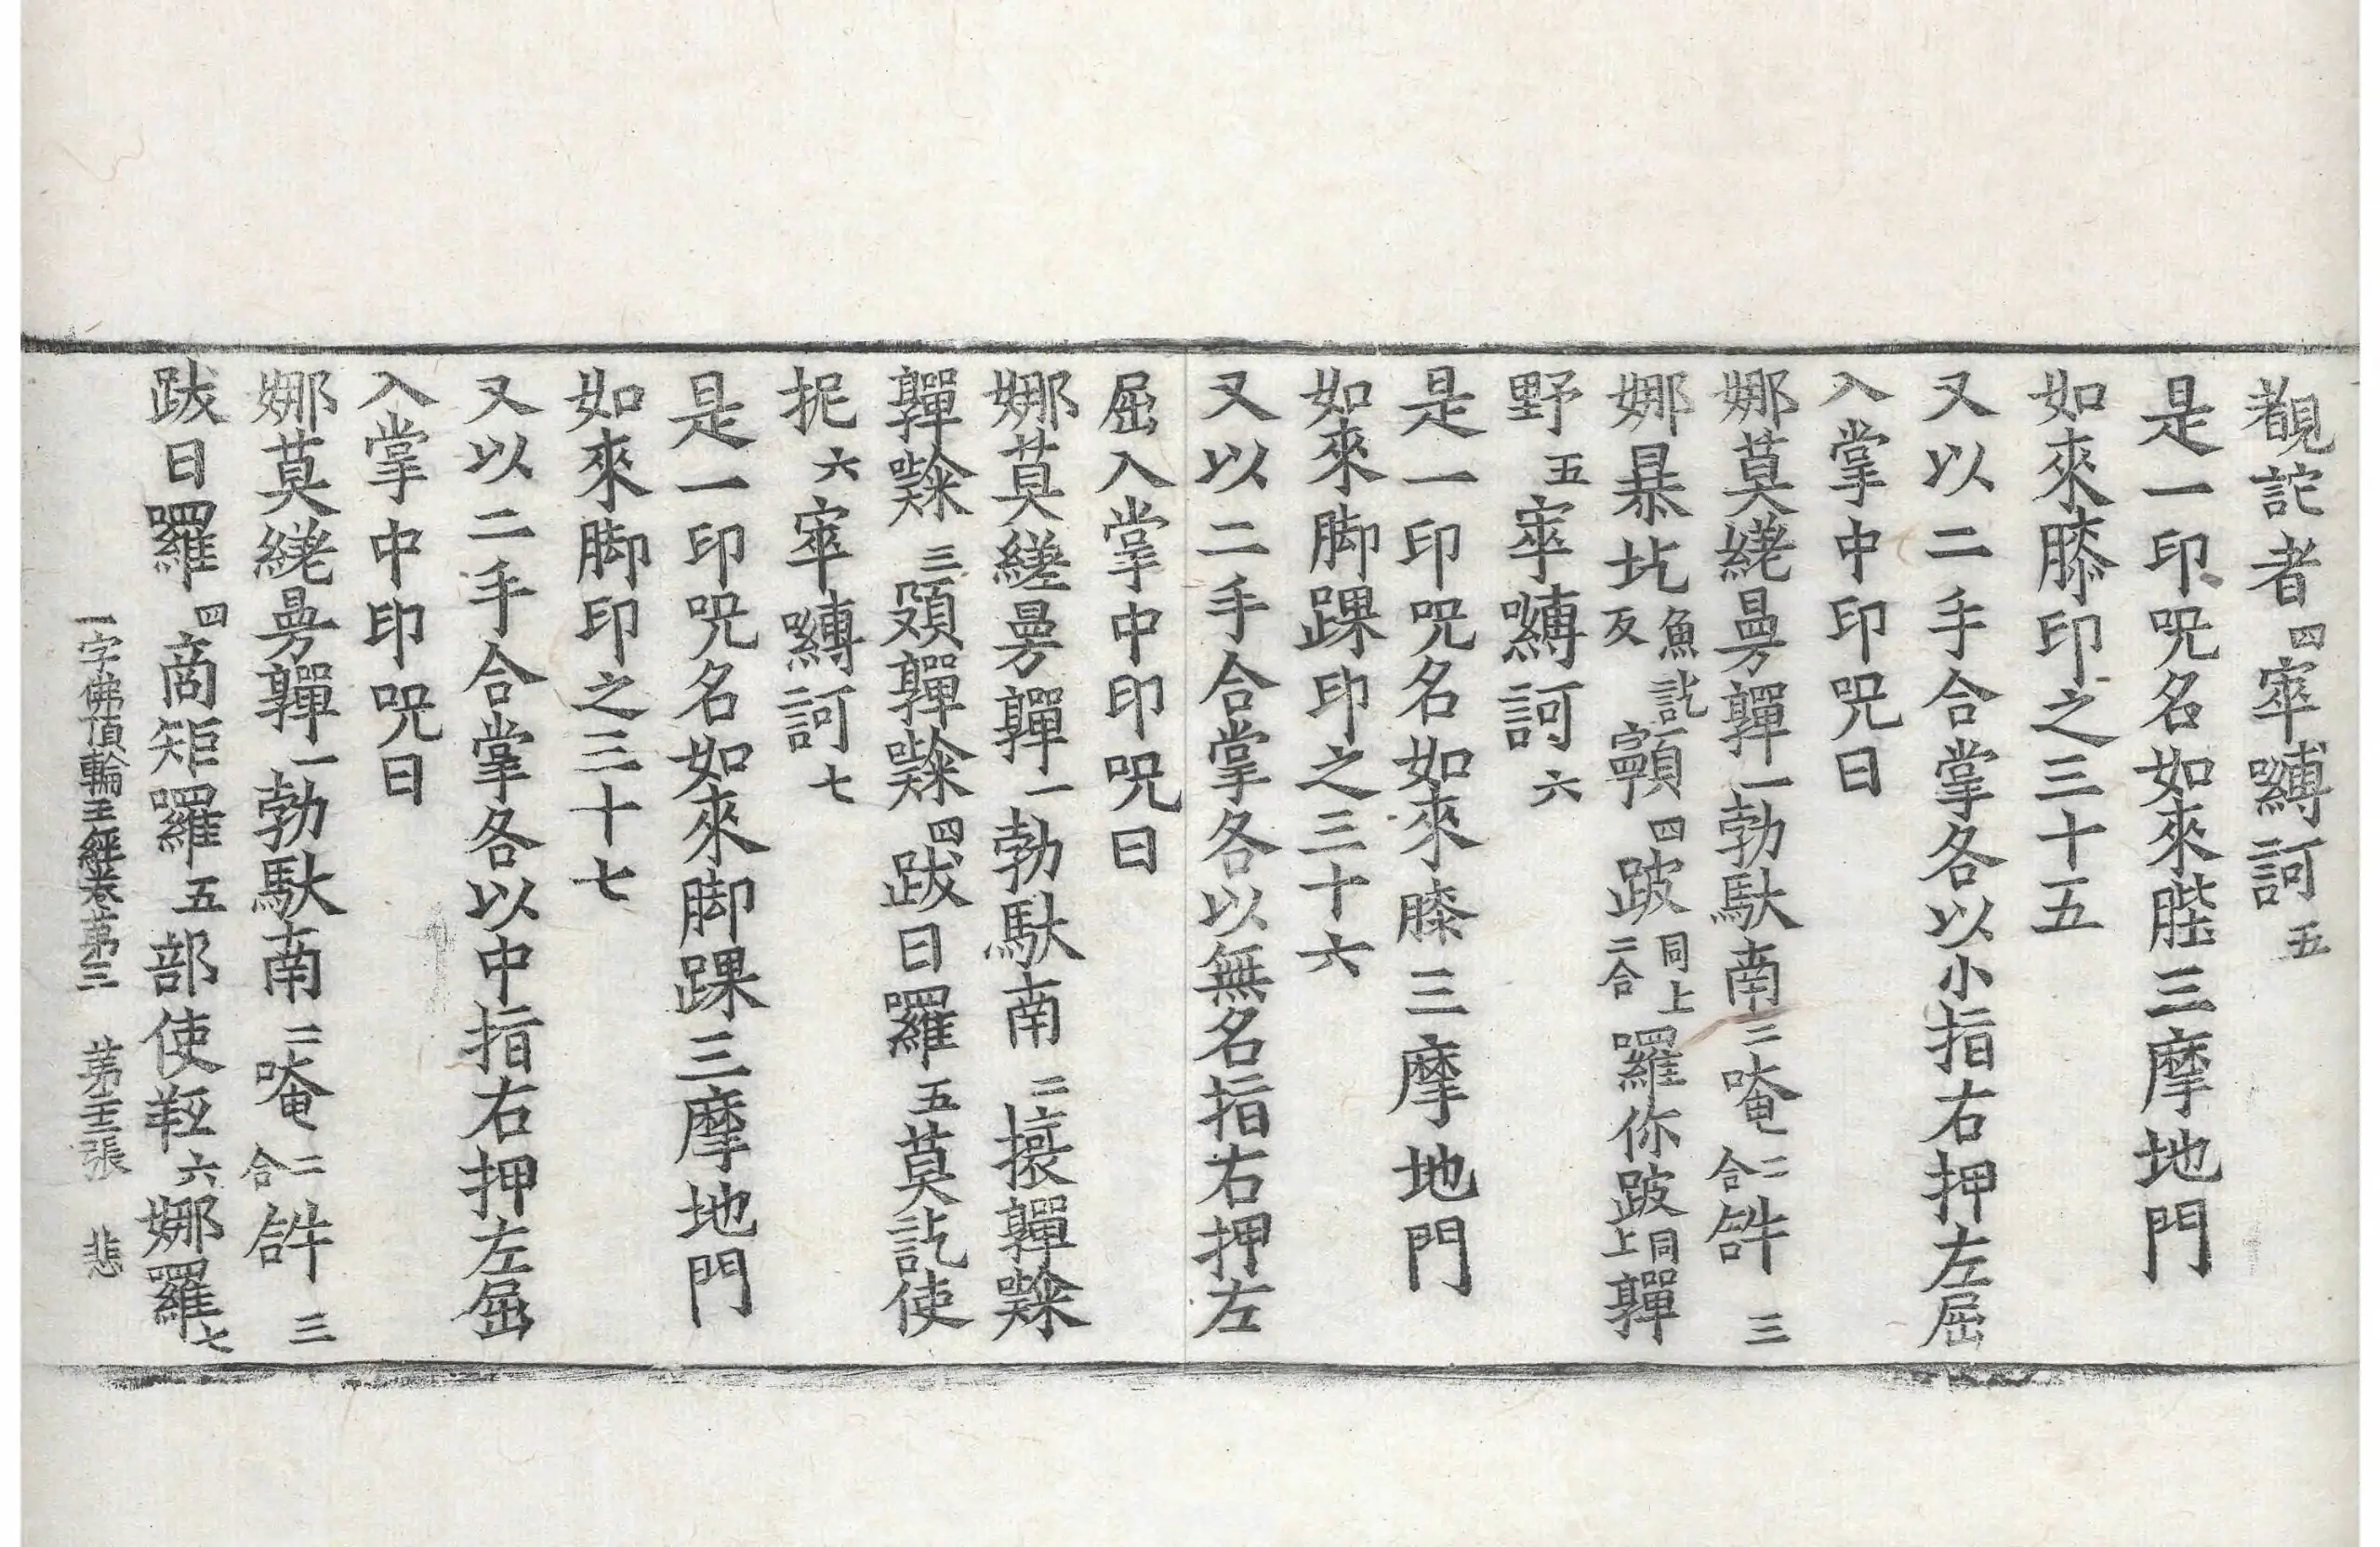 覩詑者四窣嚩訶五
是一印呪名如來䏶三摩地門
如來膝印之三十五
又以二手合掌各以小指右押左屈
入掌中印呪曰
娜莫縒曼嚲一勃馱南二唵二合𤙖三
娜暴圪魚訖反顊四跛同上二合囉你跛同上嚲
野五窣嚩訶六
是一印呪名如來膝三摩地門
如來脚踝印之三十六
又以二手合掌各以無名指右押左
屈入掌中印呪曰
娜莫縒曼嚲一勃馱南二擐嚲㘑
嚲㘑三頞嚲㘑四跋日囉五莫訖使
抳六窣嚩訶七
是一印呪名如來脚踝三摩地門
如來脚印之三十七
又以二手合掌各以中指右押左屈
入掌中印呪曰
娜莫縒曼嚲一勃馱南二唵二合𤙖三
跋日囉四商矩囉五部使羫六娜囉七
一字佛頂輪王經卷第三 第十三張 悲